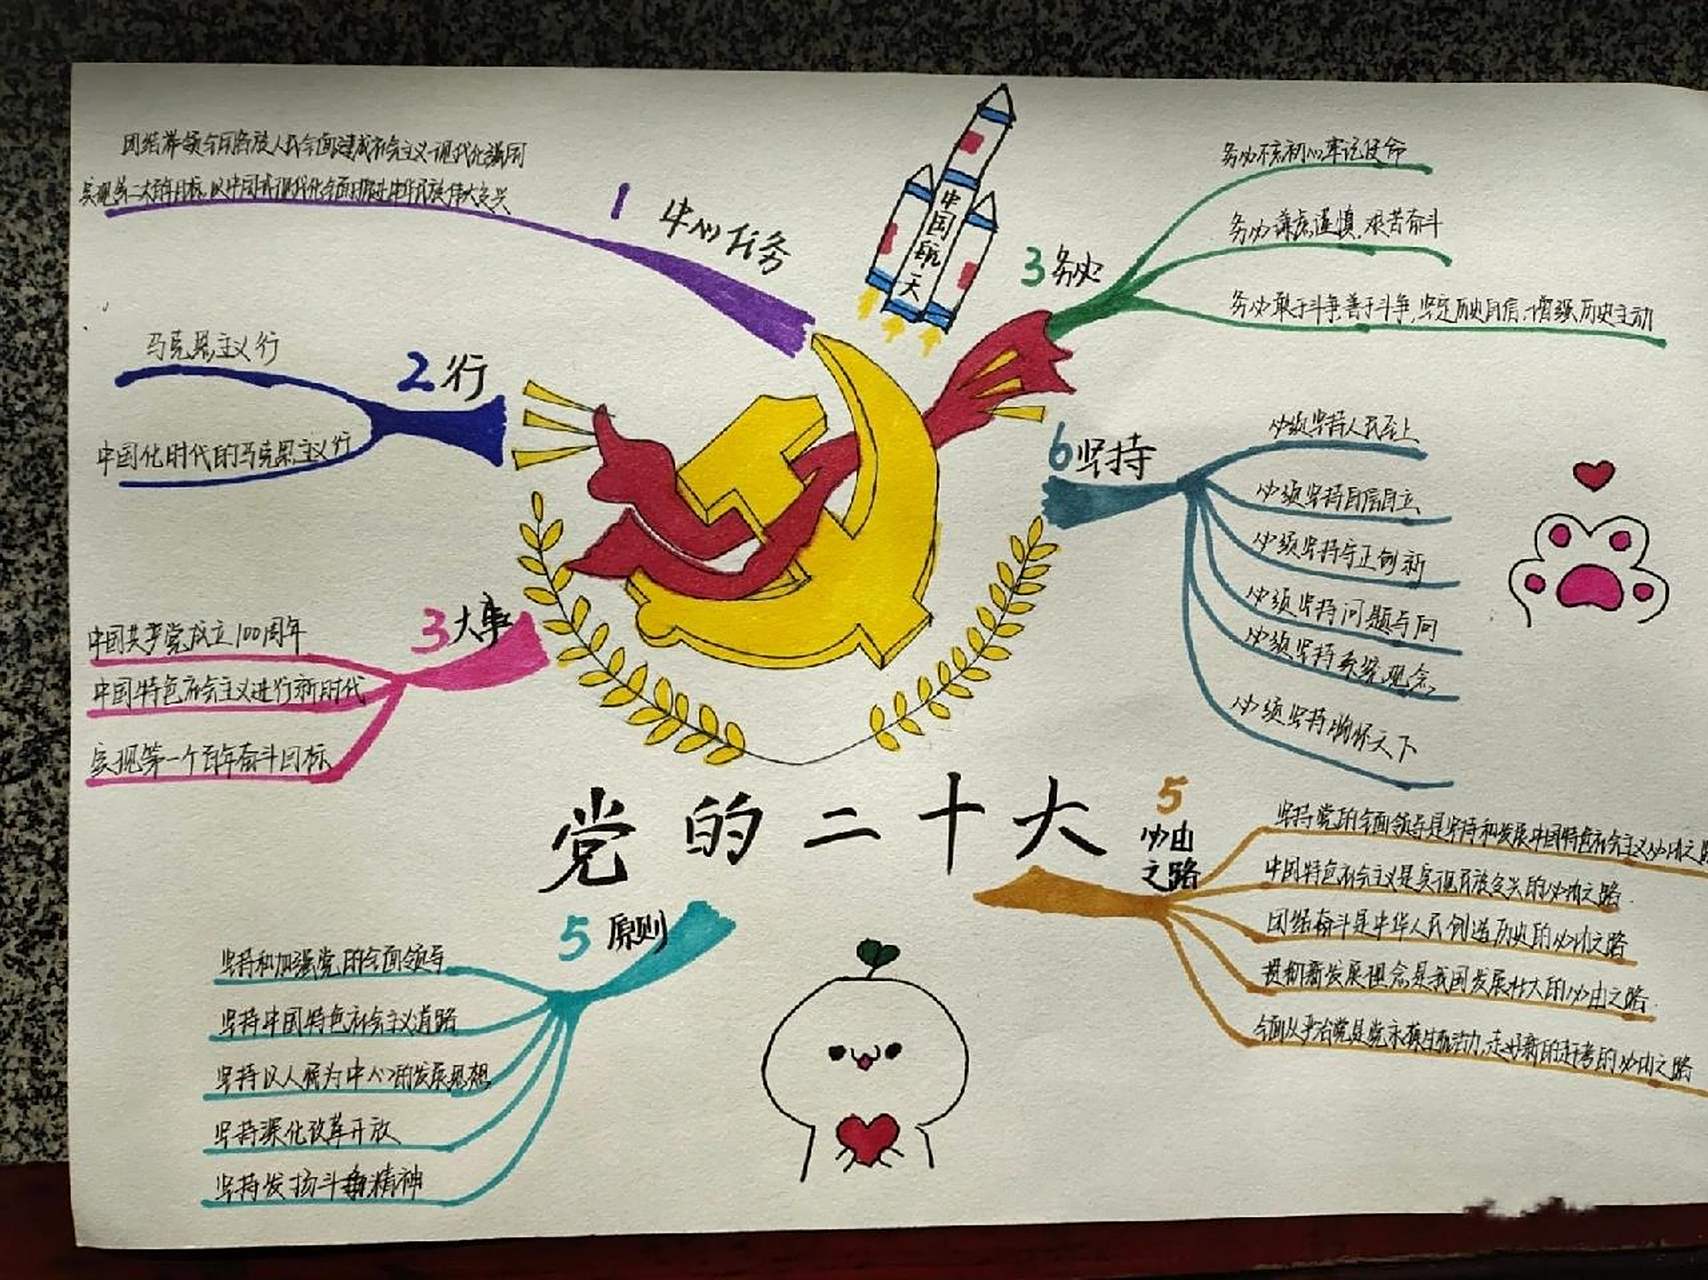 团结带领全国各族人民全面建成社会主义现代化强国
实现第二个百年目标,以中国式现代化全面推进中华民族伟大复兴
1 中心任务
中国航天
2行
马克思主义行
中国化时代的马克思主义行
3大事
中国共产党成立100周年
中国特色社会主义进行新时代
实现第一个百年奋斗目标
3务必
务必不忘初心牢记使命
务必谦虚谨慎,艰苦奋斗
务必敢于斗争善于斗争,坚定历史自信,增强历史主动
6坚持
必须坚持人民至上
必须坚持自信自立
必须坚持守正创新
必须坚持问题与向
必须坚持系统观念
必须坚持胸怀天下
党的二十大
5原则
坚持和加强党的全面领导
坚持中国特色社会主义道路
坚持以人民为中心的发展思想
坚持深化改革开放
坚持发扬斗争精神
5
必由
之路
坚持党的全面领导是坚持和发展中国特色社会主义必由之路
中国特色社会主义是实现民族复兴的必由之路
团结奋斗是中华人民创造历史的必由之路
贯彻新发展理念是我国发展壮大的必由之路
全面从严治党是党永葆生机活力,走好新的赶考的必由之路